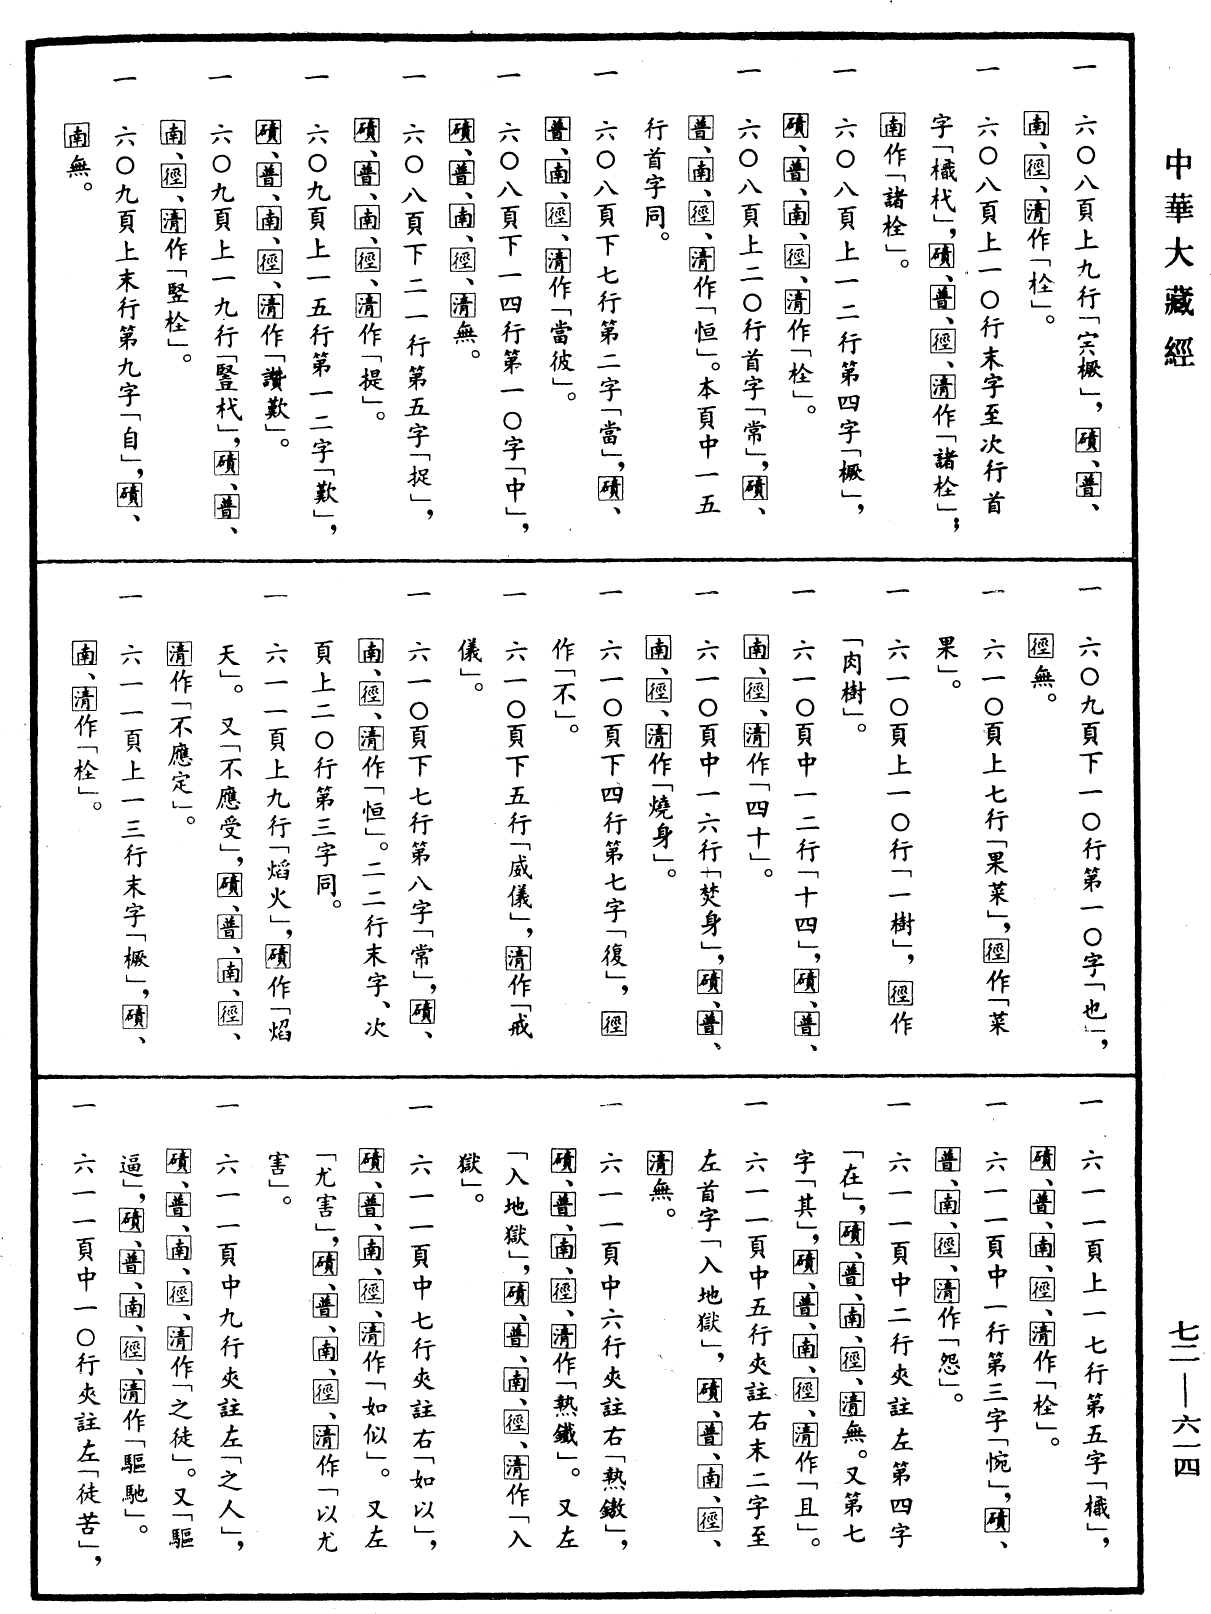 中華大藏經
一　六〇八頁上九行「宎橛」，磧、普、
南、徑、清作「栓」。
一　六〇八頁上一〇行末字至次行首
字「檥杙」，磧、普、徑、清作「諸栓」；
南作「諸栓」。
一　六〇八頁上一二行第四字「橛」，
磧、普、南、徑、清作「栓」。
一　六〇八頁上二〇行首字「常」，磧、
普、南、徑、清作「恒」。本頁中一五
行首字同。
一　六〇八頁下七行第二字「當」，磧、
普、南、徑、清作「當彼」。
一　六〇八頁下一四行第一〇字「中」，
磧、普、南、徑、清無。
一　六〇八頁下二一行第五字「捉」，
磧、普、南、徑、清作「提」。
一　六〇九頁上一五行第一二字「歎」，
磧、普、南、徑、清作「讚歎」。
一　六〇九頁上一九行「豎杙」，磧、普、
南、徑、清作「竪栓」。
一　六〇九頁上末行第九字「自」，磧、
南無。
一　六〇九頁下一〇行第一〇字「也」，
徑無。
一　六一〇頁上七行「果菜」，徑作「菜
果」。
一　六一〇頁上一〇行「一樹」，徑作
「肉樹」。
一　六一〇頁中一二行「十四」，磧、普、
南、徑、清作「四十」。
一　六一〇頁中一六行「焚身」，磧、普、
南、徑、清作「燒身」。
一　六一〇頁下四行第七字「復」，徑
作「不」。
一　六一〇頁下五行「威儀」，清作「戒
儀」。
一　六一〇頁下七行第八字「常」，磧、
南、徑、清作「恒」。二二行末字、次
頁上二〇行第三字同。
一　六一一頁上九行「焰火」，磧作「焰
天」。又「不應受」，磧、普、南、徑、
清作「不應定」。
一　六一一頁上一三行末字「橛」，磧、
南、清作「栓」。
一　六一一頁上一七行第五字「檥」，
磧、普、南、徑、清作「栓」。
一　六一一頁中一行第三字「惋」，磧、
普、南、徑、清作「怨」。
一　六一一頁中二行夾註左第四字
「在」，磧、普、南、徑、清無。又第七
字「其」，磧、普、南、徑、清作「且」。
一　六一一頁中五行夾註右末二字至
左首字「入地獄」，磧、普、南、徑、
清無。
一　六一一頁中六行夾註右「熱鏊」，
磧、普、南、徑、清作「熱鐵」。又左
「入地獄」，磧、普、南、徑、清作「入
獄」。
一　六一一頁中七行夾註右「如以」，
磧、普、南、徑、清作「如似」。又左
「尤害」，磧、普、南、徑、清作「以尤
害」。
一　六一一頁中九行夾註左「之人」，
磧、普、南、徑、清作「之徒」。又「驅
逼」，磧、普、南、徑、清作「驅馳」。
一　六一一頁中一〇行夾註左「徒苦」，
七二—六一四